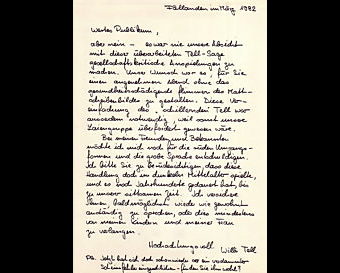 Fällanden im März 1992
Wertes Publikum,
aber nein - es war nie unsere Absicht
mit dieser überarbeiteten Tell-Sage
gesellschaftskritische Anspielungen zu
machen. Unser Wunsch war es, für Sie
einen angenehmen Abend ohne das
gesundheitsschädigende flimmern des Matt-
scheibenbildes zu gestalten. Diese Ver-
einfachung des schillernden Tell war
ausserdem notwendig, weil sonst unsere
Laiengruppe überfordert gewesen wäre.
Bei meinen Freunden und Bekannten
möchte ich mich noch für die rüden Umgangs-
formen und die grobe Sprache entschuldigen.
Ich bitte Sie zu berücksichtigen dass diese
Handlung doch im dunkeln Mittelalter spielte,
und es noch Jahrhunderte gedauert hat, bis
zu unserer sittsamen Zeit. Ich verspreche
Ihnen, baldmöglichst wieder wie gewohnt
anständig zu sprechen oder dies mindestens
von meinen Kindern und meiner Frau
zu verlangen.
Hochachtungsvoll
Willi Tell
PS. Jetzt hat sich doch schon wieder so ein verdammter
Schreibfehler eingeschlichen - finden Sie ihn wohl?